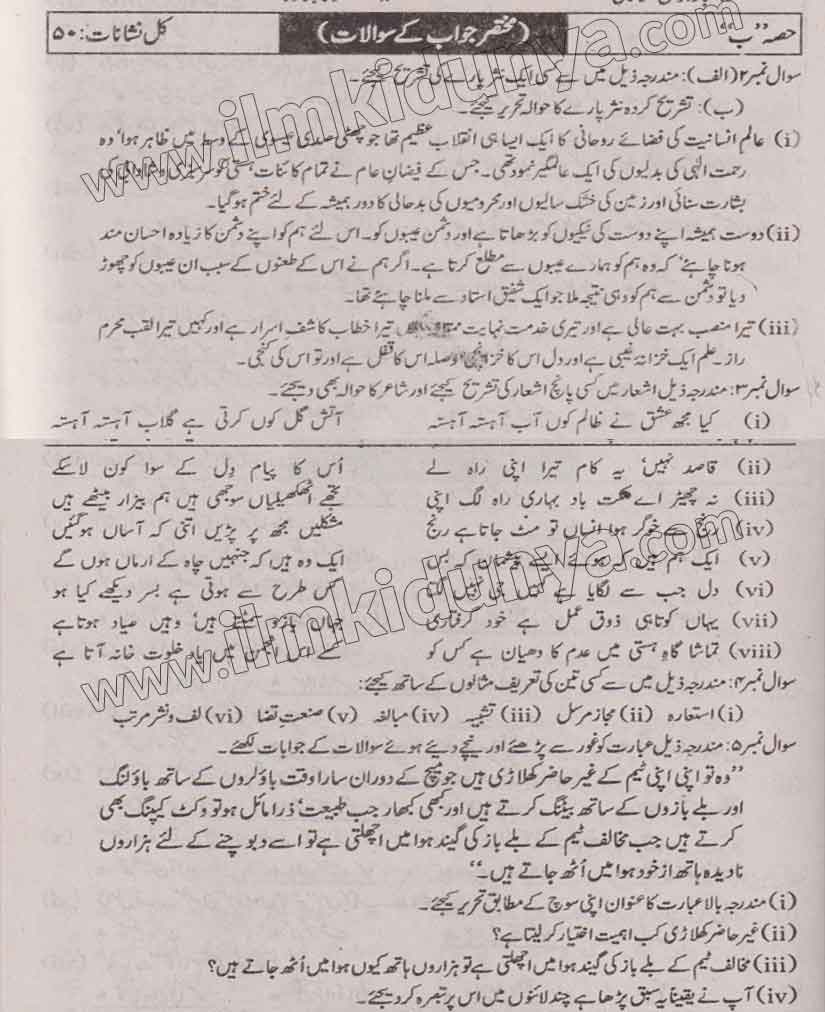 حصہ "ب" (مختصر جواب کے سوالات) کل نشانات: ۵۰
سوال نمبر ۲ (الف): مندرجہ ذیل میں سے کسی ایک نثر پارے کی تشریح کیجئے۔
(ب): تشریح کردہ نثر پارے کا حوالہ تحریر کیجئے۔
(i) عالم انسانیت کی فضائے روحانی کا ایک ایسا ہی انقلاب عظیم تھا جو چھٹی صدی عیسوی کے وسط میں ظاہر ہوا' وہ
رحمت الٰہی کی بدلیوں کی ایک عالمگیر نمود تھی۔ جس کے فیضانِ عام نے تمام کائنات ہستی کو سرسبزی و شادابی کی
بشارت سنائی اور زمین کی خشک سالیوں اور محرومیوں کی بدحالی کا دور ہمیشہ کے لئے ختم ہو گیا۔
(ii) دوست ہمیشہ اپنے دوست کی نیکیوں کو بڑھاتا ہے اور دشمن عیبوں کو۔ اس لئے ہم کو اپنے دشمن کا زیادہ احسان مند
ہونا چاہئے' کہ وہ ہم کو ہمارے عیبوں سے مطلع کرتا ہے۔ اگر ہم نے اس کے طعنوں کے سبب ان عیبوں کو چھوڑ
دیا تو دشمن سے ہم کو وہی نتیجہ ملا جو ایک شفیق استاد سے ملنا چاہئے تھا۔
(iii) تیرا منصب بہت عالی ہے اور تیری خدمت نہایت تیرا خطاب کاشف اسرار ہے اور کہیں تیرا لقب محرم
راز۔ علم ایک خزانہ غیبی ہے اور دل اس کا خزانچی' حوصلہ اس کا قفل ہے اور تو اس کی کنجی۔
سوال نمبر ۳: مندرجہ ذیل اشعار میں کسی پانچ اشعار کی تشریح کیجئے اور شاعر کا حوالہ بھی دیجئے۔
(i) کیا مجھ عشق نے ظالم کوں آب آہستہ آہستہ آتش گل کوں کرتی ہے گلاب آہستہ آہستہ
(ii) قاصد نہیں' یہ کام تیرا اپنی راہ لے اُس کا پیام دِل کے سوا کون لا سکے
(iii) نہ چھیڑ اے نکہت باد بہاری راہ لگ اپنی تجھے اٹھکھیلیاں سوجھی ہیں ہم بیزار بیٹھے ہیں
(iv) رنج سے خوگر ہوا انساں تو مٹ جاتا ہے رنج مشکلیں مجھ پر پڑیں اتنی کہ آساں ہو گئیں
(v) ایک ہم ہیں کہ ہوئے ایسے پشیمان کہ بس ایک وہ ہیں کہ جنہیں چاہ کے ارماں ہوں گے
(vi) دل جب سے لگایا ہے کہیں جی نہیں لگتا کس طرح سے ہوتی ہے بسر دیکھے کیا ہو
(vii) یہاں کوتاہی ذوق عمل ہے خود گرفتاری جہاں بازو سمٹتے ہیں' وہیں صیاد ہوتا ہے
(viii) تماشا گاہ ہستی میں عدم کا دھیان ہے کس کو کسے اس انجمن میں یاد خلوت خانہ آتا ہے
سوال نمبر ۴: مندرجہ ذیل میں سے کسی تین کی تعریف مثالوں کے ساتھ کیجئے:
(i) استعارہ (ii) مجاز مرسل (iii) تشبیہ (iv) مبالغہ (v) صنعت تضاد (vi) لف و نشر مرتب
سوال نمبر ۵: مندرجہ ذیل عبارت کو غور سے پڑھئے اور نیچے دیئے ہوئے سوالات کے جوابات لکھئے۔
"وہ تو اپنی اپنی ٹیم کے غیر حاضر کھلاڑی ہیں جو میچ کے دوران سارا وقت باؤلروں کے ساتھ باؤلنگ
اور بلے بازوں کے ساتھ بیٹنگ کرتے ہیں اور کبھی کبھار جب طبیعت' ذرا مائل ہو تو وکٹ کیپنگ بھی
کرتے ہیں جب مخالف ٹیم کے بلے باز کی گیند ہوا میں اچھلتی ہے تو اسے دبوچنے کے لئے ہزاروں
نادیدہ ہاتھ از خود ہوا میں اُٹھ جاتے ہیں۔"
(i) مندرجہ بالا عبارت کا عنوان اپنی سوچ کے مطابق تحریر کیجئے۔
(ii) غیر حاضر کھلاڑی کب اہمیت اختیار کر لیتا ہے؟
(iii) مخالف ٹیم کے بلے باز کی گیند ہوا میں اچھلتی ہے تو ہزاروں ہاتھ کیوں ہوا میں اُٹھ جاتے ہیں؟
(iv) آپ نے یقیناً یہ سبق پڑھا ہے چند لائنوں میں اس پر تبصرہ کر دیجئے۔
www.ilmkidunya.com
www.ilmkidunya.com